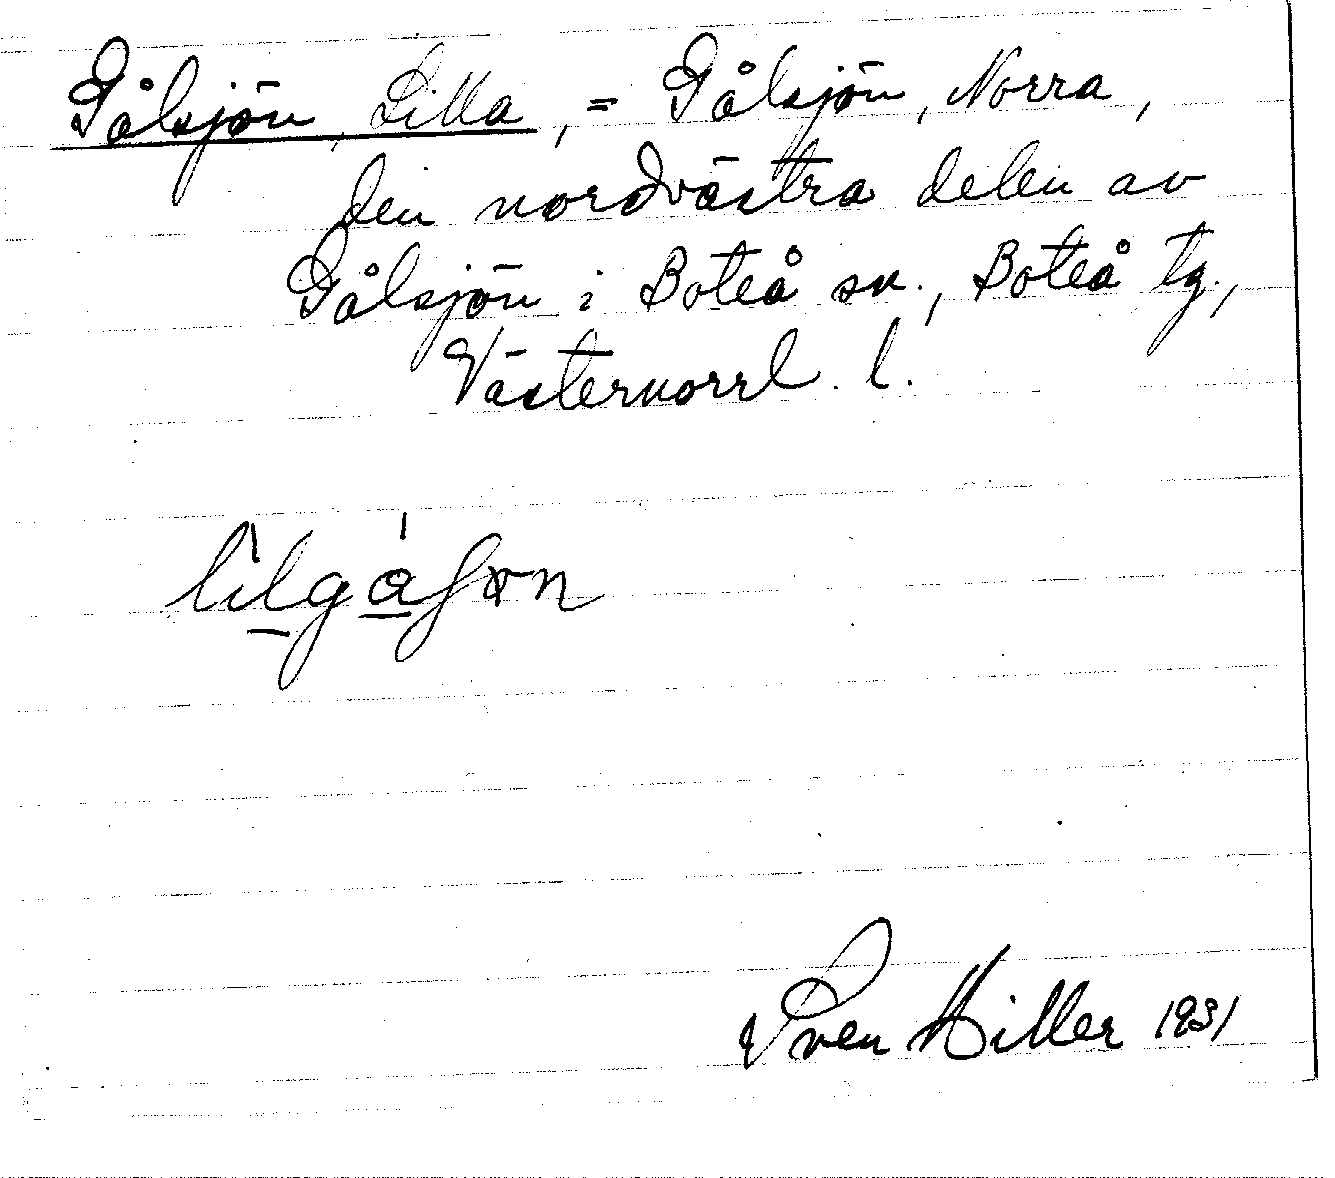 Gålsjön, Lilla, = Gålsjön, Norra,
den nordvästra delen av
Gålsjön i Boteå sn., Boteå tg.,
Västernorrl. l.
Sven Hiller 1931